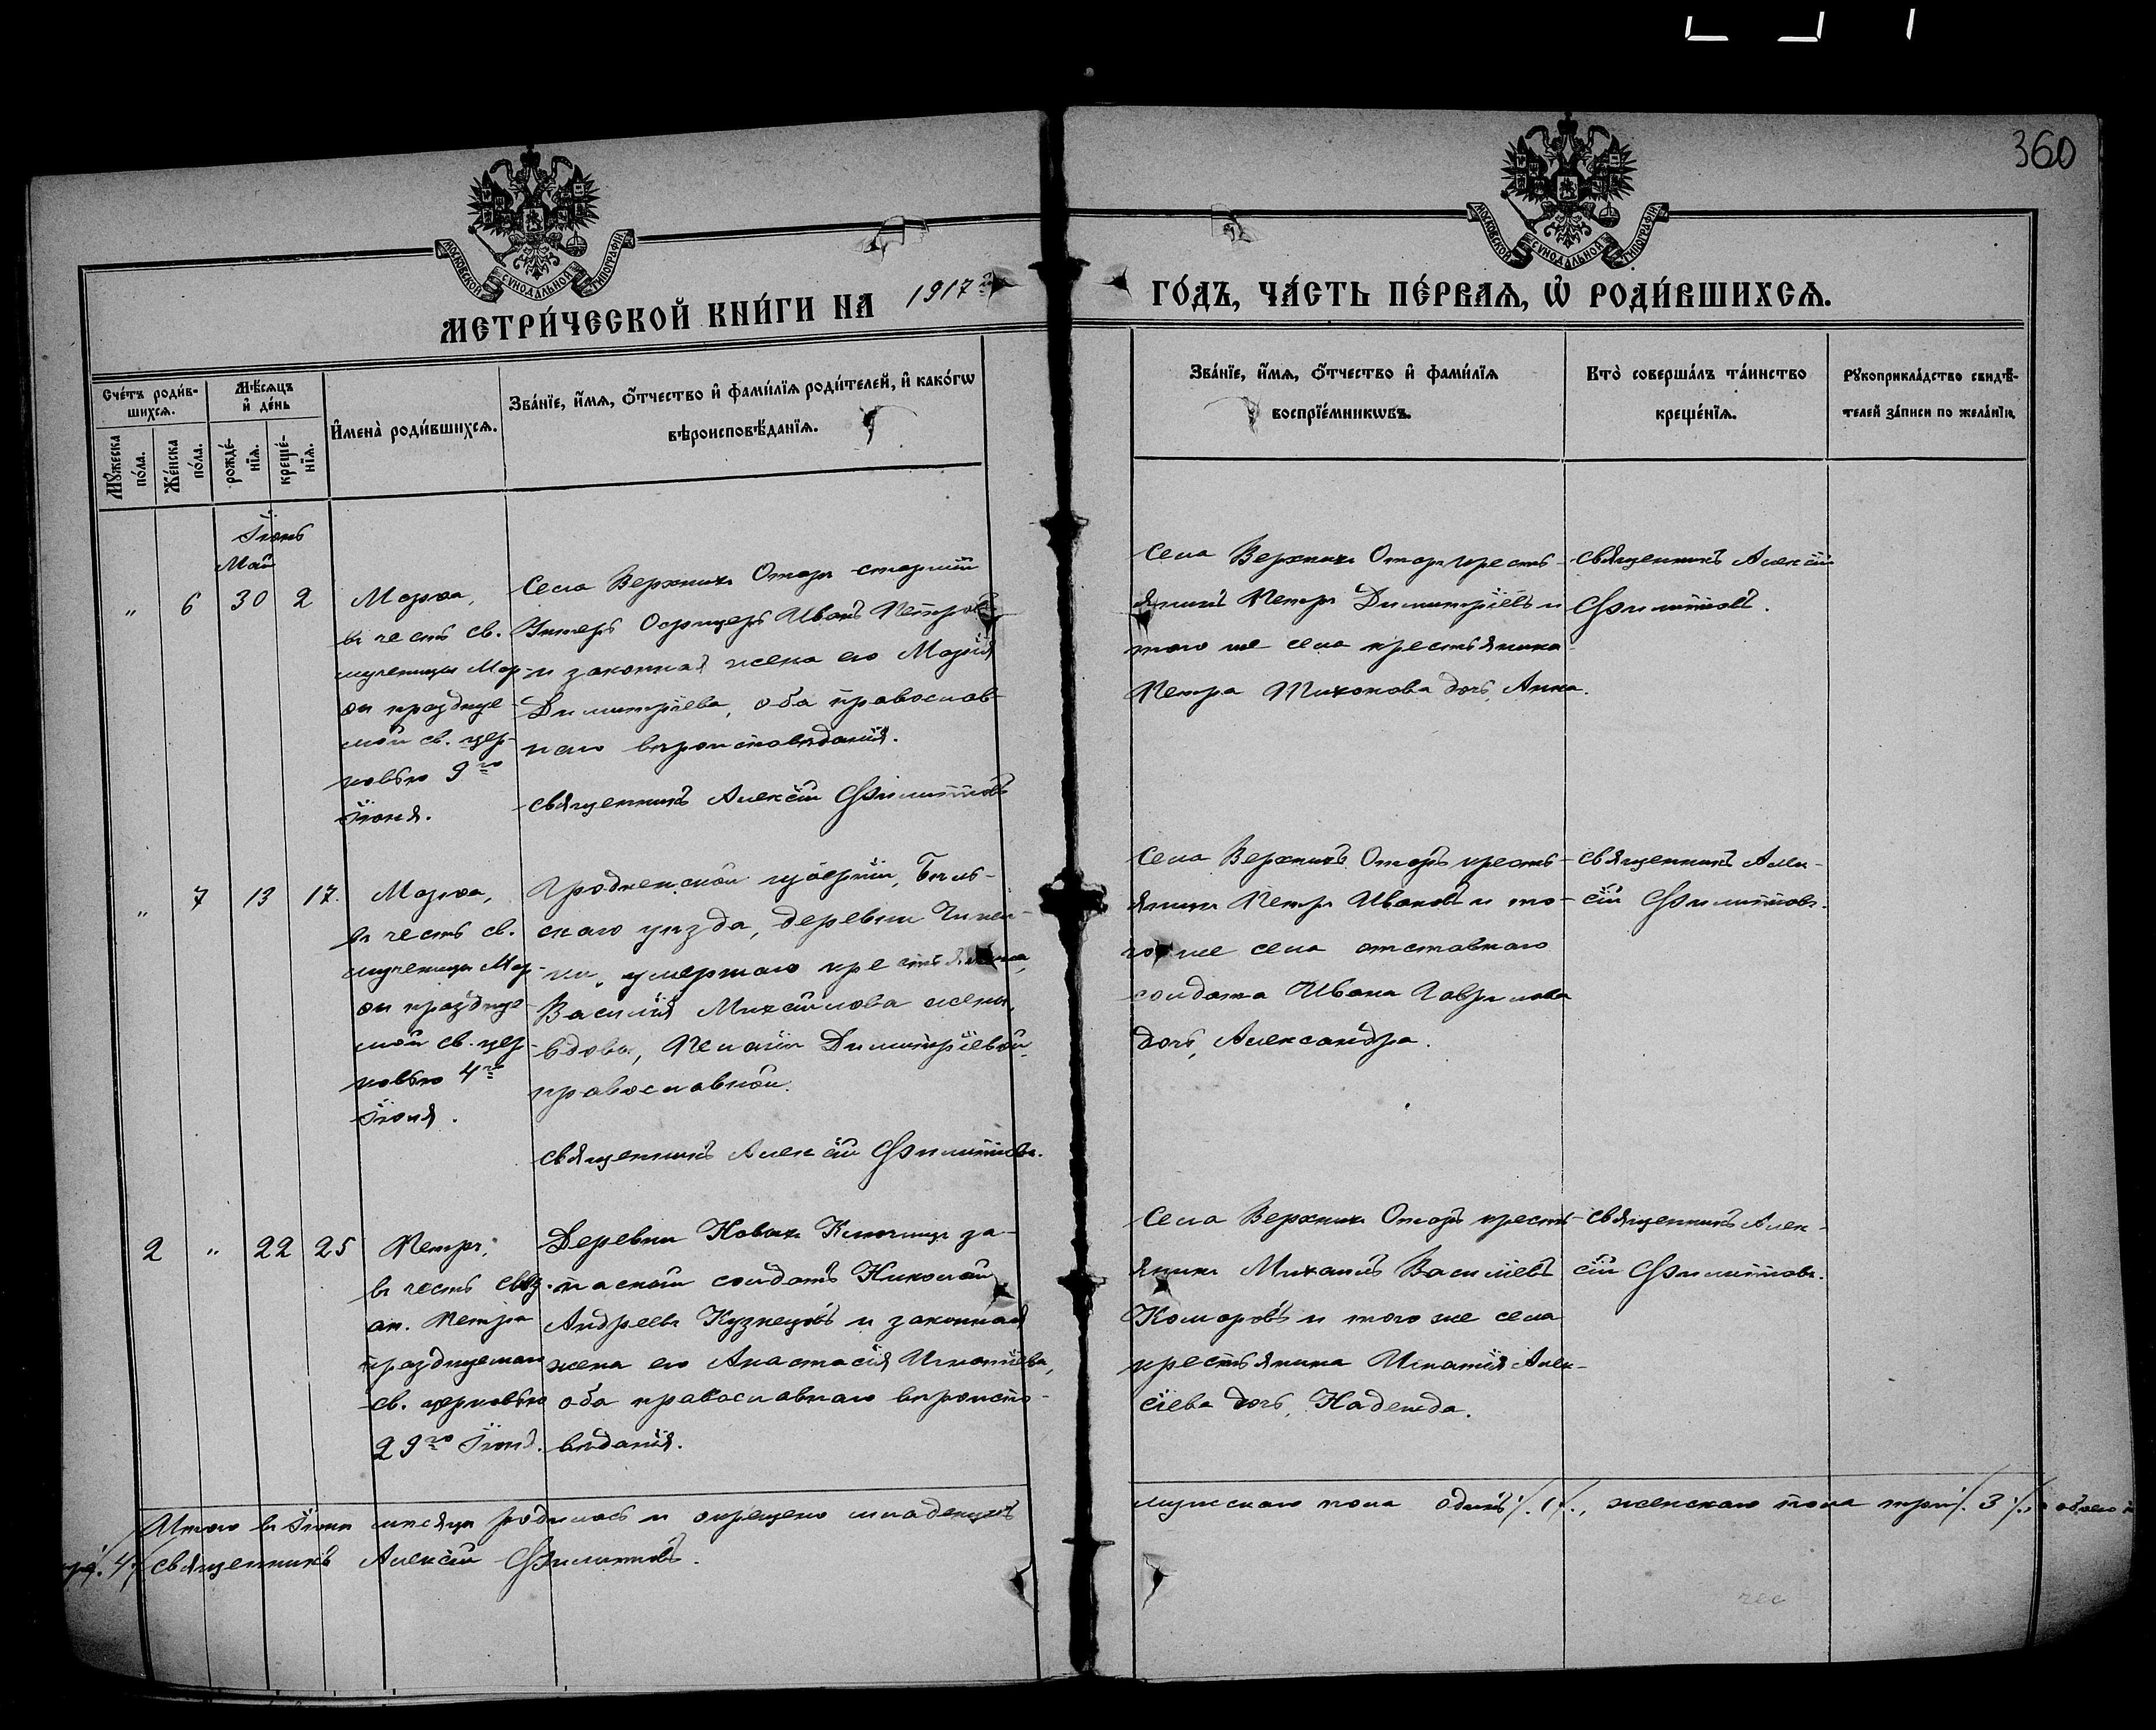 360
МОСКОВСКОЙ СѴНОДАЛЬНОЙ ТИПОГРАФІИ
МОСКОВСКОЙ СѴНОДАЛЬНОЙ ТИПОГРАФІИ
МЕТРИ́ЧЕСКОЙ КНИ́ГИ НА 1917й
ГО́ДЪ, ЧА́СТЬ ПЕ́РВАѦ, Ѽ РОДИ́ВШИХСѦ.
Сче́тъ роди́в-
шихсѧ.
Мѣ́сѧцъ
и҆ де́нь
Мꙋ́жеска
по́ла.
Же́нска
по́ла.
рожде́-
нїѧ.
креще́-
нїѧ.
И҆мена̀ роди́вшихсѧ.
Зва́нїе, и҆́мѧ, ѻ҆́тчество и҆ фами́лїѧ роди́телей, и҆ како́гѡ
вѣроисповѣ́данїѧ.
Зва́нїе, и҆́мѧ, ѻ҆́тчество и҆ фами́лїѧ
воспрїе́мникѡвъ.
Кто̀ соверша́лъ та́инство
креще́нїѧ.
Рꙋкоприкла́дство свидѣ́-
телей за́писи по жела́нїю.
Іюнь
Май
" 6 30 2
Марѳа,
въ честь св.
мученицы Мар-
ѳы празднуе-
мой св. цер-
ковью 9го
Іюня.
Села Верхнихъ Отаръ старшій
Унтеръ Офицеръ Иванъ Петровъ
и законная жена его Марія
Димитріева, оба православ-
наго вѣроисповѣданія.
Священникъ Алексій Филипповъ
Села Верхнихъ Отаръ кресть-
янинъ Петръ Димитріевъ и
того же села крестьянина
Петра Тихонова дочь, Анна.
Священникъ Алексій
Филипповъ.
" 7 13 17.
Марѳа,
въ честь св.
мученицы Мар-
ѳы празднуе-
мой св. цер-
ковью 4го
Іюня.
Гродненской губерніи, Бѣль-
скаго уѣзда, деревни
умершаго крестьянина,
Василія Михайлова жены,
вдовы, Пелагіи Димитріевой,
православной.
Священникъ Алексій Филипповъ.
Села Верхнихъ Отаръ кресть-
янинъ Петръ Ивановъ и то-
го же села отставнаго
солдата Ивана Гаврилова
дочь, Александра.
Священникъ Алек-
сій Филипповъ.
2 " 22 25
Петръ,
въ честь
ап. Петра
празднуемаго
св. церковью
29го Іюня.
Деревни Новыхъ Ключищъ за-
пасной солдатъ Николай
Андреевъ Кузнецовъ и законная
жена его Анастасія Игнатіева,
оба православнаго вѣроиспо-
вѣданія.
Села Верхнихъ Отаръ кресть-
янинъ Михаилъ Василіевъ
Комаровъ и того же села
крестьянина Игнатія Алек-
сіева дочь, Надежда.
Священникъ Алек-
сій Филипповъ.
Итого въ Іюнѣ мѣсяцѣ родилось и окрещено младенцевъ
мужскаго пола одинъ /.1/., женскаго пола три /.3/., обоего
/.4/. Священникъ Алексій Филипповъ.